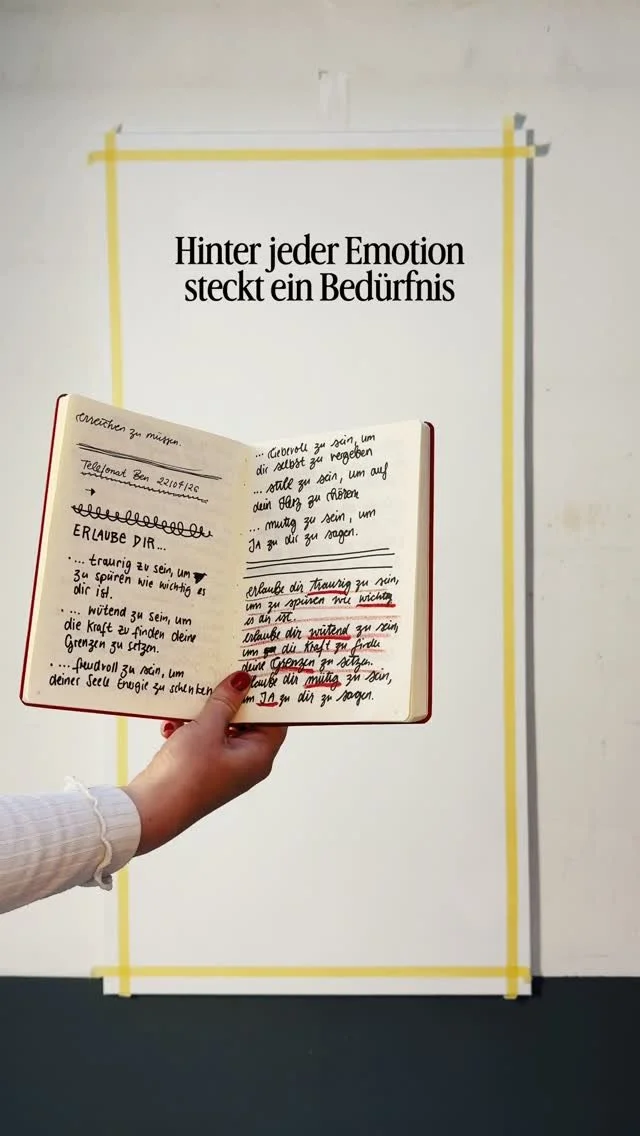 Hinter jeder Emotion
steckt ein Bedürfnis
erreichen zu müssen.
Telefonat Ben 22/04/26
ERLAUBE DIR...
• ... traurig zu sein, um
zu spüren wie wichtig es
dir ist.
• ... wütend zu sein, um
die Kraft zu finden deine
Grenzen zu setzen.
• ... freudvoll zu sein, um
deiner Seele Energie zu schenken
... liebevoll zu sein, um
dir selbst zu vergeben
... still zu sein, um auf
dein Herz zu hören
... mutig zu sein, um
JA zu dir zu sagen.
erlaube dir traurig zu sein,
um zu spüren wie wichtig
es dir ist.
erlaube dir wütend zu sein,
um die Kraft zu finden
deine Grenzen zu setzen.
laube dir mutig zu sein,
um JA zu dir zu sagen.